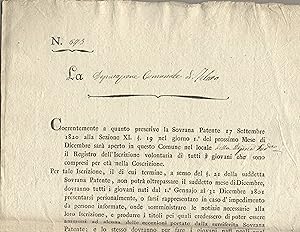 N. 693
La Deputazione Comunale di
Coerentemente a quanto prescrive la Sovrana Patente 17 Settembre
1820 alla Sezione XI. §. 19 nel giorno 1.° del prossimo Mese di
Dicembre sarà aperto in questo Comune nel locale della
il Registro dell'Iscrizione volontaria di tutti i giovani che sono
compresi per età nella Coscrizione.
Per tale Iscrizione, il di cui termine, a senso del §. 22 della suddetta
Patente, non potrà oltrepassare il suddetto mese di Dicembre,
dovranno tutti i giovani nati dal 1.° Gennajo al 31 Dicembre 1801
presentarsi personalmente, o farsi rappresentare in caso d'impedimento
da persone informate, onde somministrare le notizie necessarie alla
loro Iscrizione, e produrre i titoli quali credessero di poter essere
ammessi ad alcuna delle eccezioni portate dalla suddetta Sovrana
Patente; e lo stesso dovranno